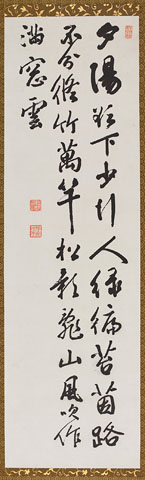 夕陽欲下少行人緑徧苔茵路
不分脩竹萬竿松影亂山風吹作
滿窓雲